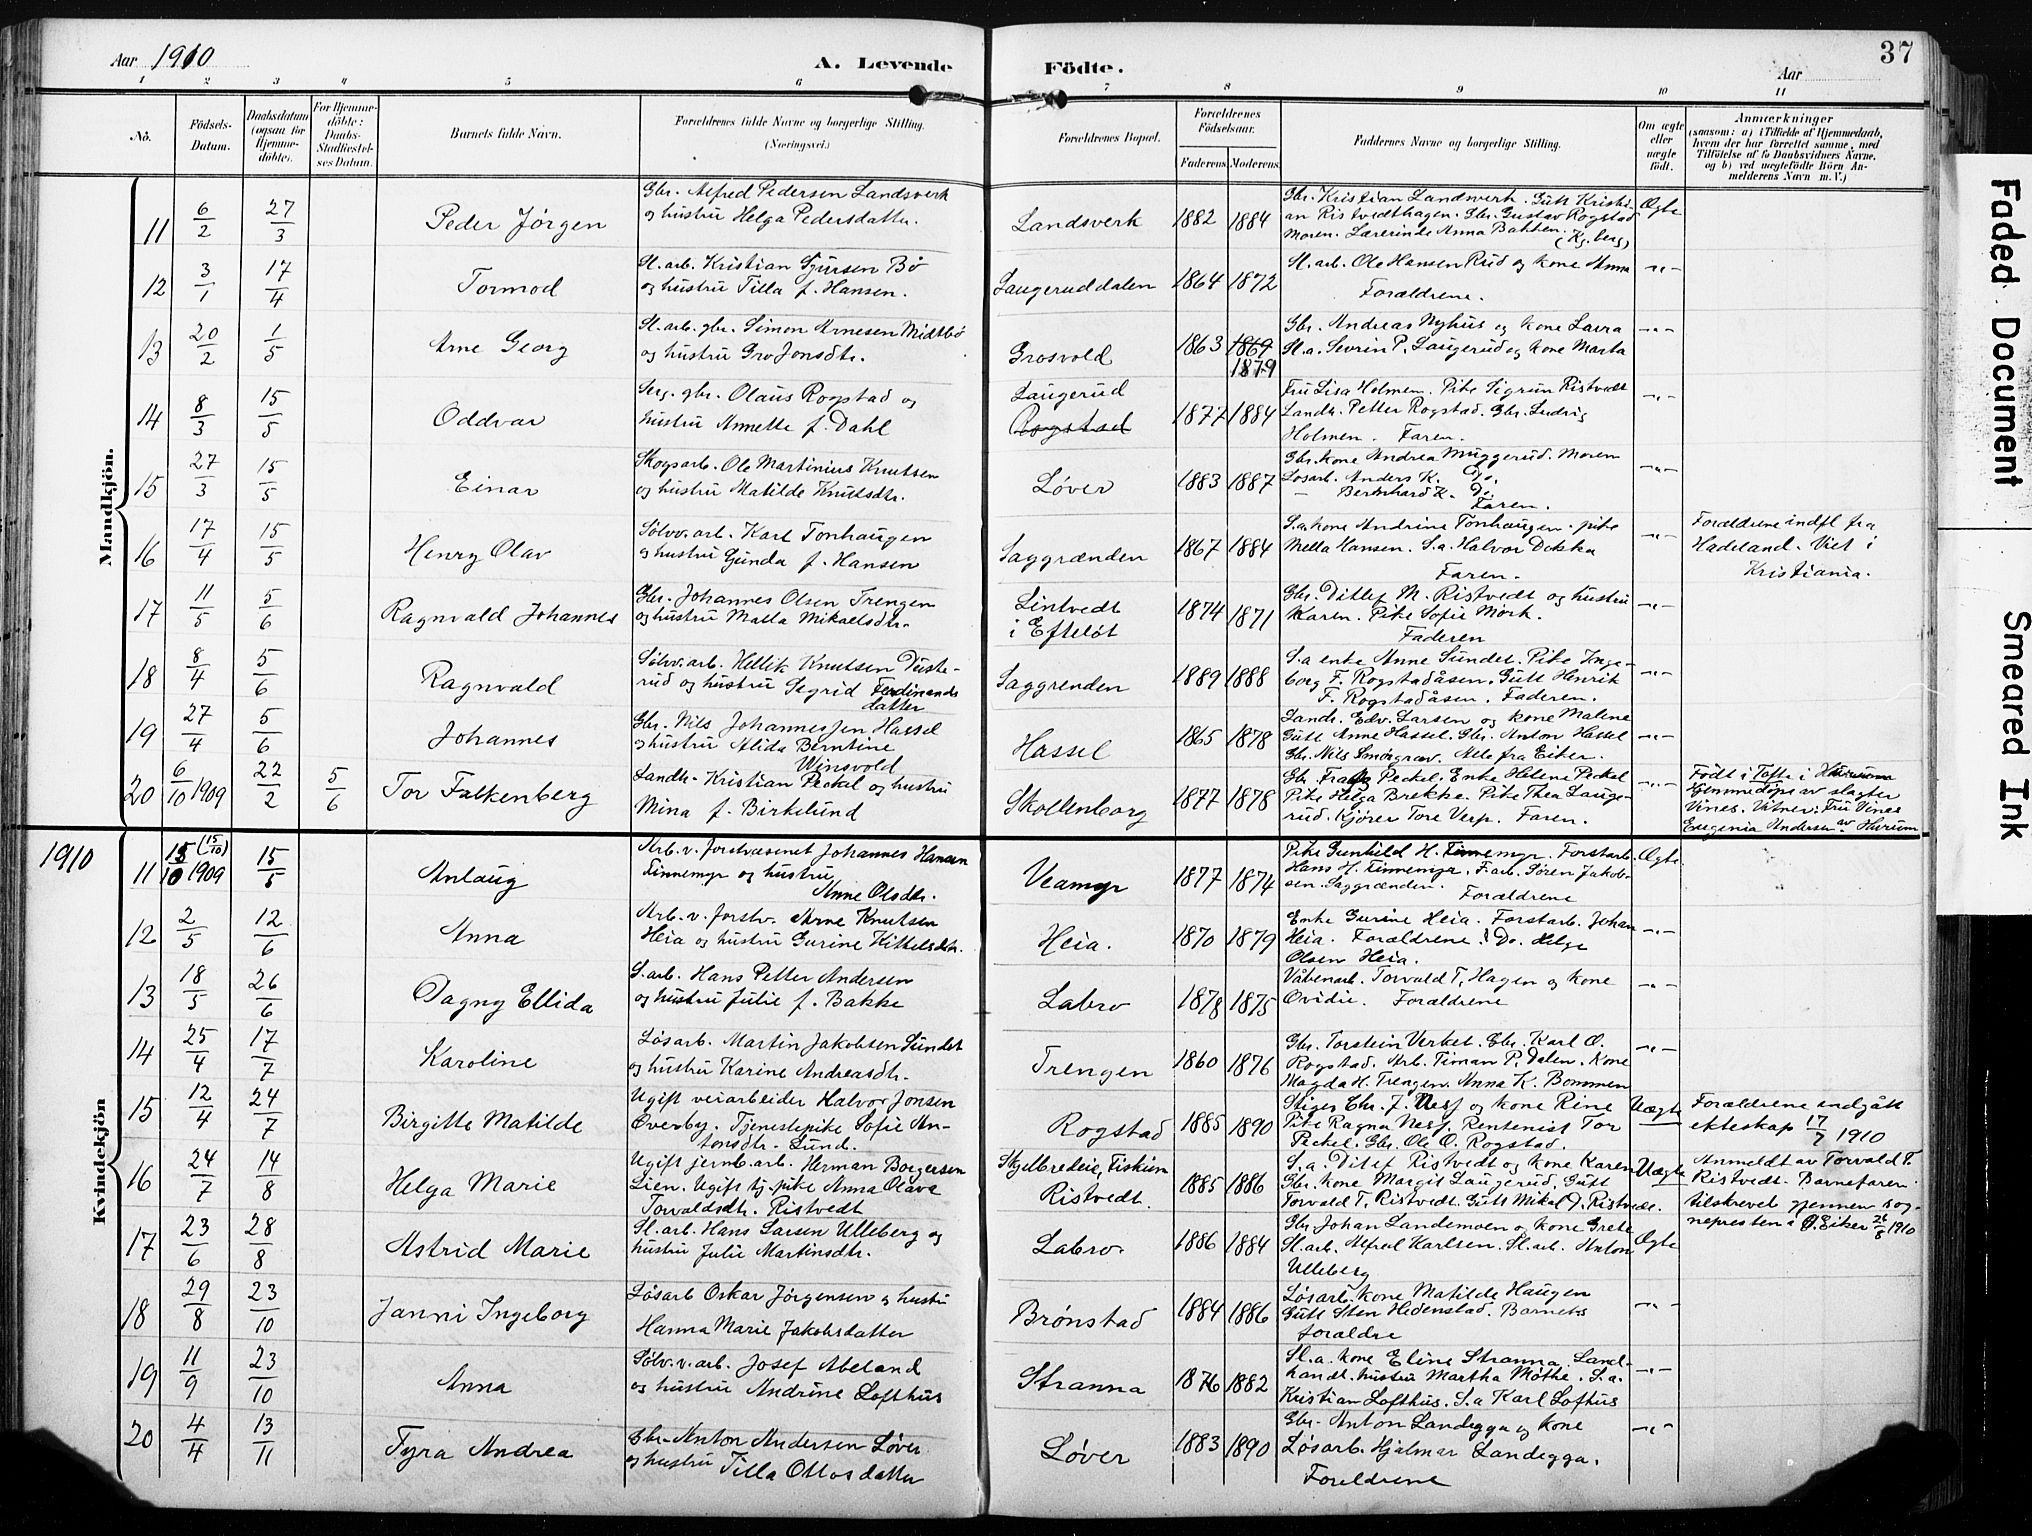 Aar 1910
A. Levende Födte.
Aar
37
1 2 3 4 5 6 7 8 9 10 11
No.
Födsels-Datum.
Daabsdatum (ogsaa for Hjemme-döbte).
For Hjemme-döbte: Daabs-Stadfæstel-ses Datum.
Barnets fulde Navn.
Forældrenes fulde Navne og borgerlige Stilling.
(Næringsvei.)
Forældrenes Bopæl.
Forældrenes Födselsaar.
Faderens. Moderens.
Faddernes Navne og borgerlige Stilling.
Om ægte eller uægte födt.
Anmærkninger
(saasom: a) i Tilfælde af Hjemmedaab, hvem der har forrettet samme, med Tilföielse af to Daabsvidners Navne, og b) ved uægtefödte Börn An-melderens Navn m. V.)
Mandkjön.
11 6/2 27/3 Peder Jørgen
Gbr. Alfred Pedersen Landsverk
og hustru Helga Pedersdatter.
Landsverk 1882 1884
Gbr. Kristian Landsverk. Gutt Kristi-
an Ristvedthagen. Gbr. Gustav Rogstad
Moren. Lærerinde Anna Bakken. (Kg.berg)
Ægte
12 3/1 17/4 Tormod
Sl. arb. Kristian Sjursen Bø
og hustru Tilla f. Hansen.
Laugeruddalen 1864 1872
Sl. arb. Ole Hansen Rud og kone Anna
Forældrene.
-"-
13 20/2 1/5 Arne Georg
Sl. arb. gbr. Simon Arnesen Midtbø
og hustru Gro Jonsdtr.
Grosvold 1863 1869 1879
Gbr. Andreas Nyhus og kone Laura
Sl.a. Sevrin P. Laugerud og kone Marta
-"-
14 8/3 15/5 Oddvar
Serg. gbr. Olaus Rogstad og
hustru Annette f. Dahl
Laugerud
Rogstad 1877 1884
Fru Lisa Holmen. Pike Sigrun Ristvedt
Landh. Petter Rogstad. Gbr. Ludvig
Holmen. Faren.
-"-
15 27/3 15/5 Einar
Skogsarb. Ole Martinius Knutsen
og hustru Matilde Knutsdtr.
Løver 1883 1887
Gbr. kone Andrea Muggerud. Moren
Løsarb. Anders K. Do.
— Bernhard K. Do.
Faren.
-"-
16 17/4 15/5 Henry Olav
Sølvv. arb. Karl Tonhaugen
og hustru Gunda f. Hansen
Saggrænden 1867 1884
S.a. kone Andrine Tonhaugen. pike
Mella Hansen. S.a. Halvor Dokka
Faren.
-"-
Forældrene indfl fra
Hadeland. Viet i
Kristiania.
17 11/5 5/6 Ragnvald Johannes
Gbr. Johannes Olsen Trengen
og hustru Malla Mikaelsdtr.
Lintvedt
i Efteløt 1874 1871
Gbr. Ditlef M. Ristvedt og hustru
Karen. Pike Sofie Mørk.
Faderen
-"-
18 8/4 5/6 Ragnvald
Sølvv. arb. Hellik Knutsen Duste-
rud og hustru Segrid Ferdinands
datter
Saggrenden 1889 1888
S.a enke Anne Sundet. Pike Inge-
borg F. Rogstadåsen. Gutt Henrik
F. Rogstadåsen. Faderen.
-"-
19 27/4 5/6 Johannes
Gbr. Nils Johannessen Hassel
og hustru Alida Berntine
Winsvold
Hassel 1865 1878
Landh. Edv. Larsen og kone Malene
Gutt Arne Hassel. Gbr. Anton Hassel
Gbr. Nils Smørgrav. Alle fra Eiker.
-"-
20 6/10 1909 22/2 5/6 Tor Falkenberg
Landh. Kristian Peckel og hustru
Mina f. Birkelund
Skollenborg 1877 1878
Gbr. Frans Peckel. Enke Helene Peckel
Pike Helga Brekke. Pike Thea Lauge-
rud. Kjører Tore Verp. Faren.
-"-
Født i Tofte i Hurum
Hjemmedøpt av slagter
Vines. Vitner: Fru Vines
Eugenia Andersen av Hurum
Kvindekjön
1910
11 15/10 1909 (15/10) 15/5 Anlaug
Arb. v. forstvæsenet Johannes Hansen
Finnemyr og hustru
Anne Olsdtr.
Veamyr 1877 1874
Pike Gunhild H. Finnemyr. Forstarb.
Hans H. Finnemyr. F.arb. Søren Jakob-
sen. Saggrænden. Forældrene
Ægte
12 2/5 12/6 Anna
Arb. v. forstv. Arne Knutsen
Heia og hustru Gurine Kittelsdtr.
Heia. 1870 1879
Enke Gurine Heia. Forstarb. Johan
Heia. Forældrene. Do. Helge
Olsen Heia.
-"-
13 18/5 26/6 Dagny Ellida
S. arb. Hans Petter Andersen
og hustru Julie f. Bakke
Labro 1878 1875
Våbenarb. Torvald T. Hagen og kone
Ovidie. Forældrene
-"-
14 25/4 17/7 Karoline
Løsarb. Martin Jakobsen Sundet
og hustru Karine Andreasdtr.
Trengen 1860 1876
Gbr. Torstein Verket. Gbr. Karl O.
Rogstad. Arb. Timan P. Dalen. Kone
Magda H. Trengen. Anna K. Bommen
-"-
15 12/4 24/7 Birgitte Matilde
Ugift veiarbeider Halvor Jonsen
Øverby. Tjenestepike Sofie An-
tonsdtr. Lund.
Rogstad 1885 1890
Stiger Chr. J. Næss og kone Rine
Pike Ragna Næss. Rentenist Tor
Peckel. Gbr. Ole O. Rogstad.
Uægte
Forældrene indgått
ekteskap 17/7 1910
16 24/7 14/8 Helga Marie
Ugift jernb. arb. Herman Borgersen
Lien. Ugift tj. pike Anna Olava
Torvaldsdtr. Ristvedt
Skjelbredeie, Fiskum
Ristvedt. 1885 1886
S.a. Ditlef Ristvedt og kone Karen
Gbr. kone Margit Laugerud. Gutt
Torvald T. Ristvedt. Gutt Mikal D. Ristvedt.
Uægte
Anmeldt av Torvald T.
Ristvedt. Barnefaren
tilskrevet gjennem sog-
nepresten i Ø. Eiker 26/8 1910
17 23/6 28/8 Astrid Marie
Sl. arb. Hans Larsen Ulleberg og
hustru Julie Martinsdtr.
Labro 1886 1884
Gbr Johan Landemoen og kone Grete
Sl. arb. Alfred Karlsen. Sl. arb. Anton
Ulleberg
Ægte
18 29/8 23/10 Janni Ingeborg
Løsarb Oskar Jørgensen og hustru
Hanna Marie Jakobsdatter
Brønstad 1884 1886
Løsarb. kone Matilde Haugen
Gutt Sten Hedenstad. Barnets
foraldre
-"-
19 11/9 23/10 Anna
Sølv. v. arb. Josef Abeland
og hustru Andrine Lofthus
Stranna 1876 1882
Sl.a. kone Eline Stranna. Land-
handl. hustru Martha Møthe. S.a.
Kristian Lofthus. S.a Karl Lofthus
-"-
20 4/4 13/11 Tyra Andrea
Gbr. Anton Andersen Løver
og hustru Tilla Ottosdatter
Løver 1883 1890
Gbr. Anton Landegga og kone
Løsarb. Hjalmar Landegga.
Foreldrene
-"-
Faded Document
Smeared Ink